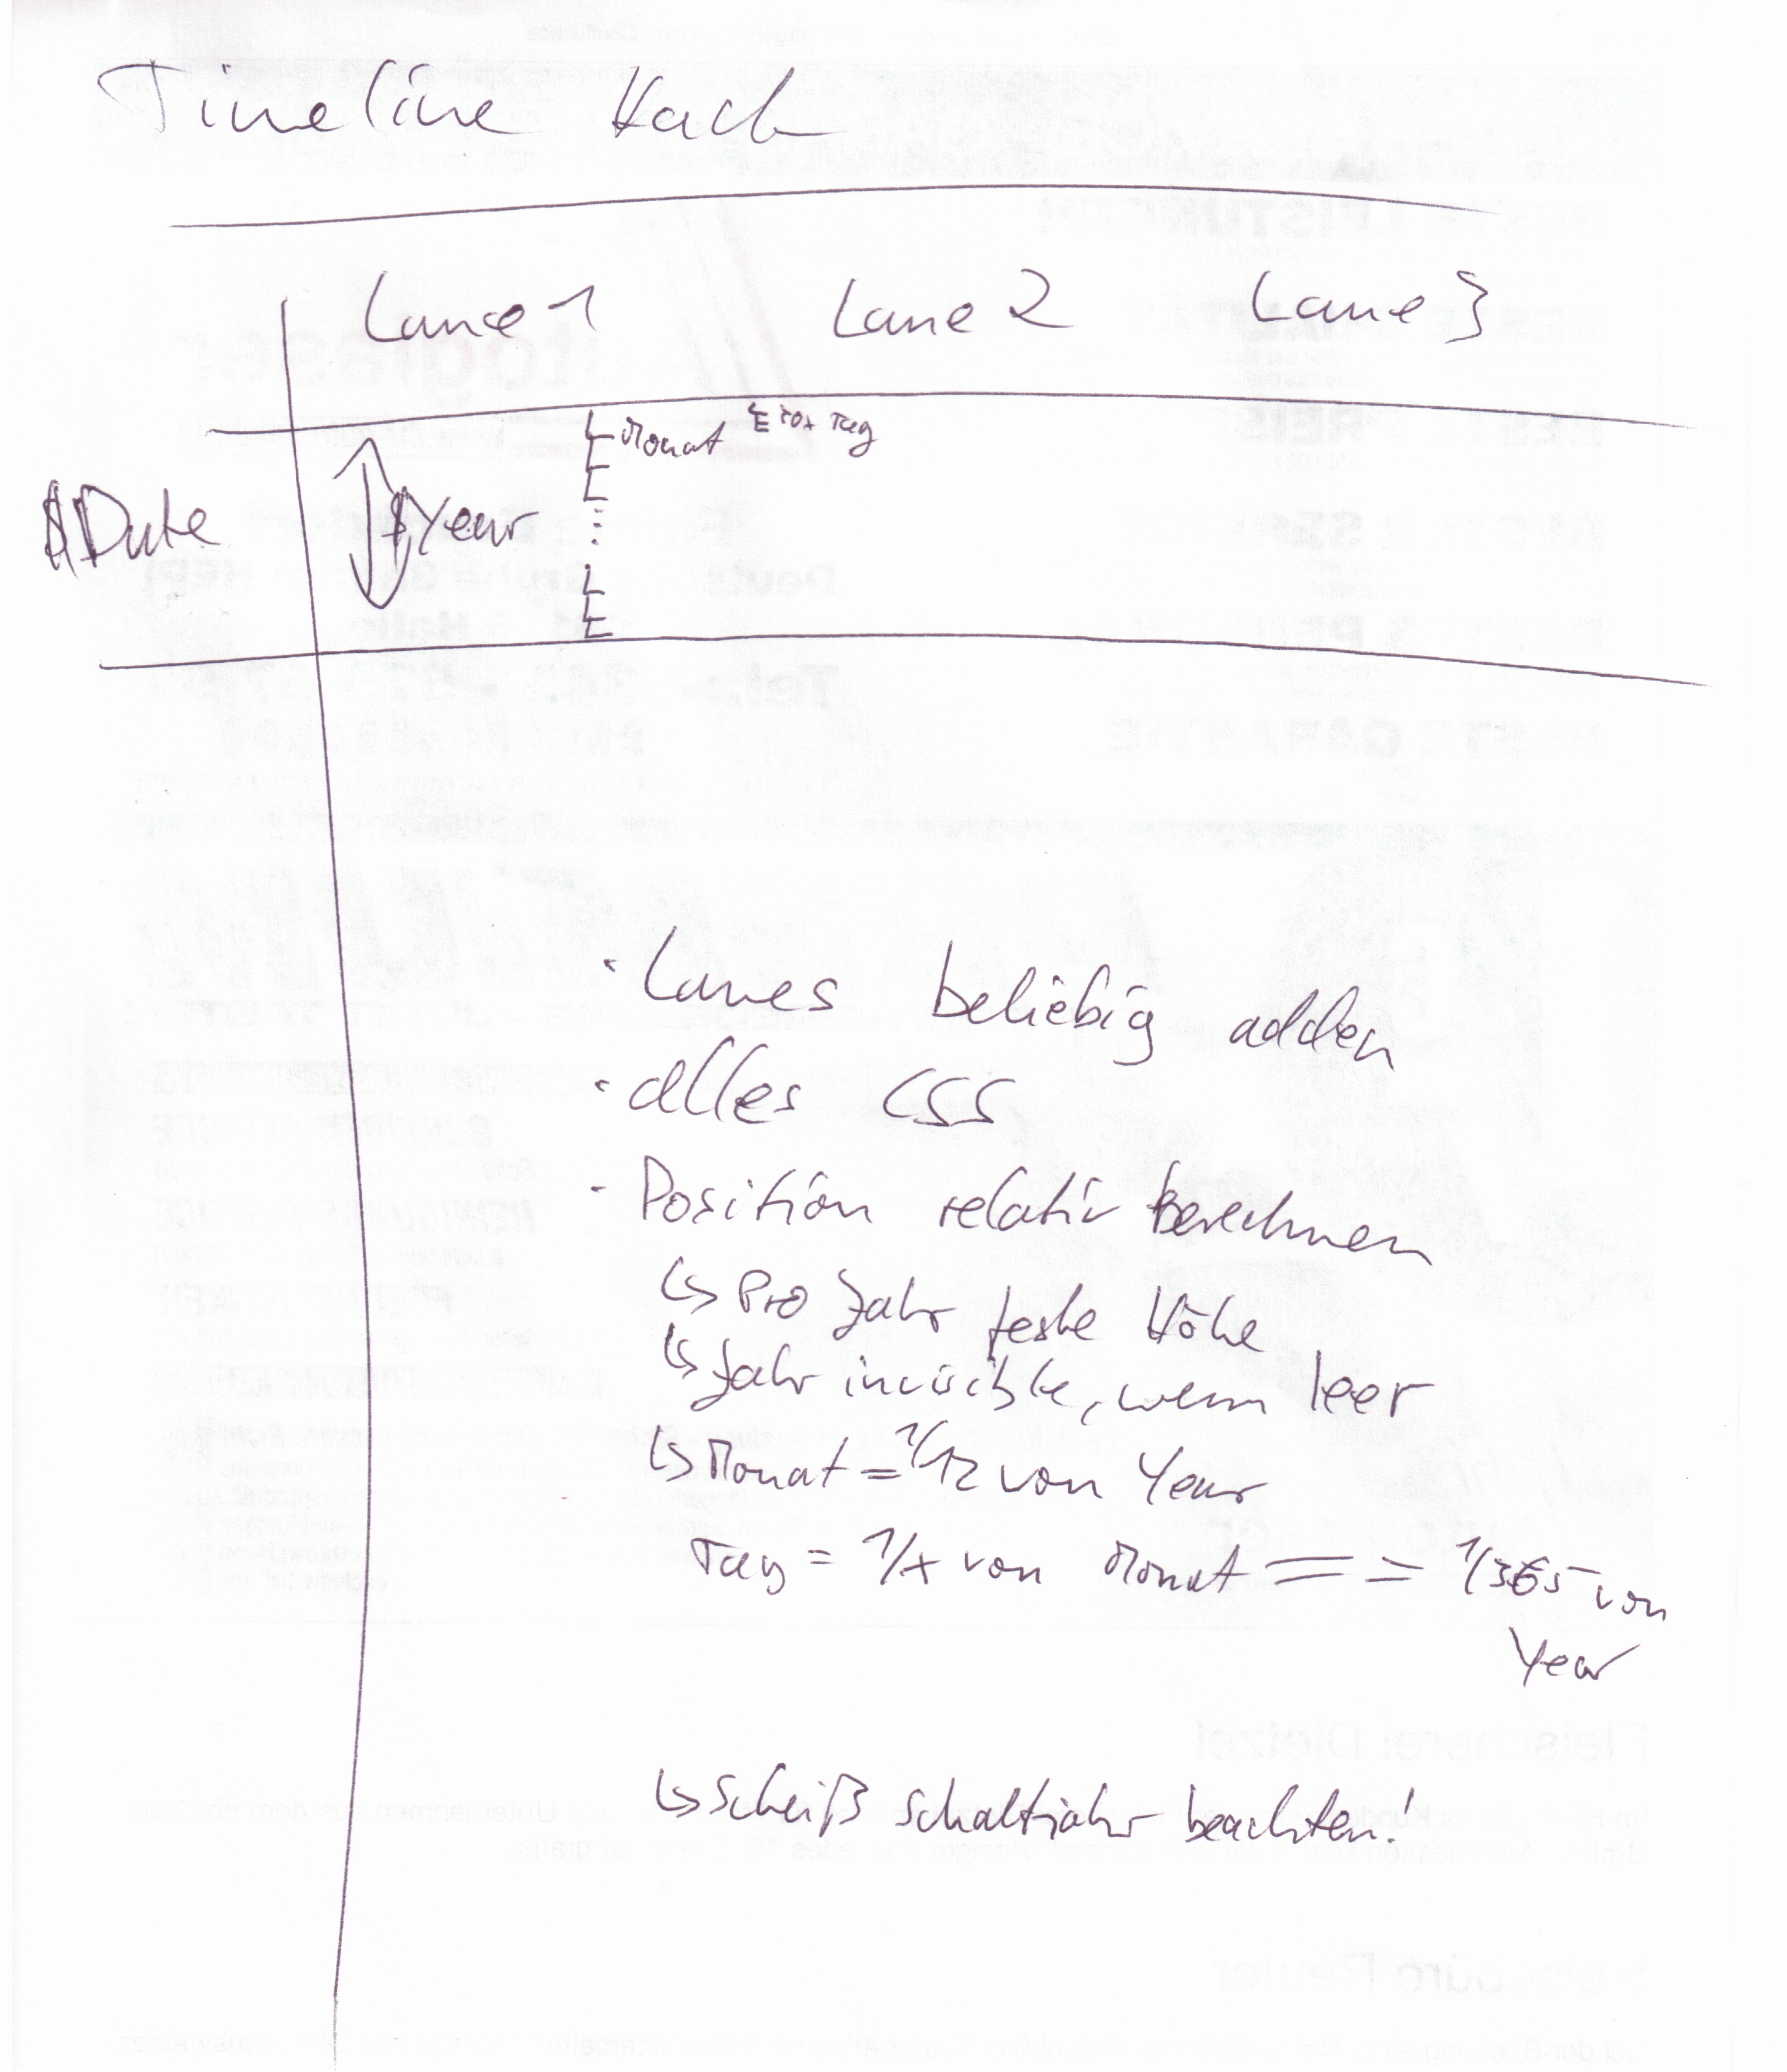 Timeline Hack
Lane 1 Lane 2 Lane 3
Monat Tag
$Date $Year
· Lanes beliebig adden
· alles CSS
- Position relativ berechnen
↳ Pro Jahr feste Höhe
↳ Jahr invisible, wenn leer
↳ Monat = 1/12 von Year
Tag = 1/x von Monat == = 1/365 von
Year
↳ Scheiß Schaltjahr beachten!